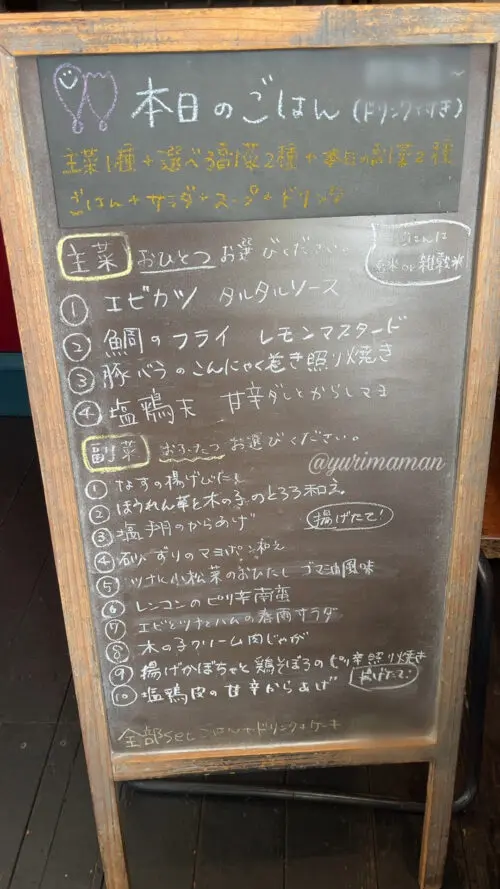 本日のごはん (ドリンク付き)
主菜1種+選べる副菜2種+本日の副菜2種
ごはん+サラダ+スープ+ドリンク
主菜 おひとつ お選びください。
ごはんは
玄米 or 雑穀米
① エビカツ タルタルソース
② 鯛のフライ レモンマスタード
③ 豚バラのこんにゃく巻き照り焼き
④ 塩鶏天 甘辛ダレとからしマヨ
副菜 おふたつ お選びください。
@yurimaman
① なすの揚げびたし
② ほうれん草と木の子のとろろ和え
③ 塩 のからあげ 揚げたて!
④ 砂ずりのマヨポン和え
⑤ ツナと小松菜のおひたし ゴマ油風味
⑥ レンコンのピリ辛南蛮
⑦ エビとツナとハムの春雨サラダ
⑧ 木の子クリーム肉じゃが
⑨ 揚げかぼちゃと鶏そぼろのピリ辛照り焼き
⑩ 塩鶏皮の甘辛からあげ 揚げたて!
全部set ごはん+ドリンク+ケーキ